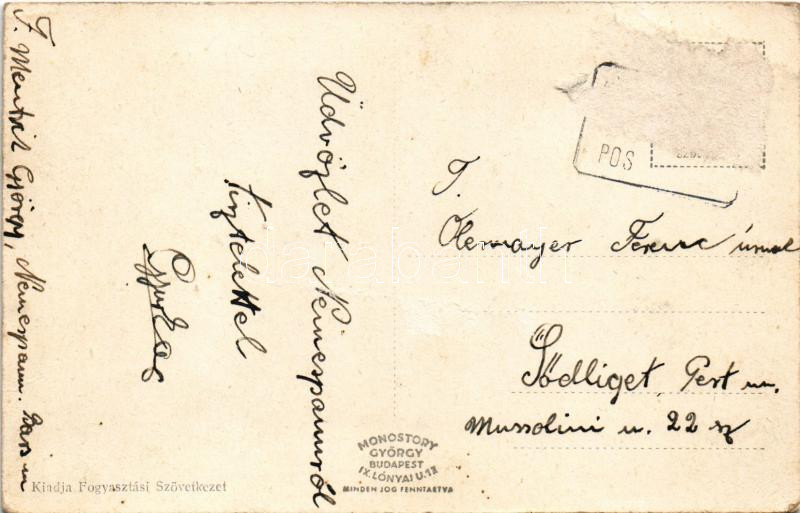 F. Mentál György, Nemespann. Bars m
Üdvözlet Nemespannról
Tisztelettel
POS
T.
Obermayer Ferenc úrnak
Sődliget, Pest m.
Mussolini u. 22 sz
MONOSTORY
GYÖRGY
BUDAPEST
IX. LÓNYAI U. 18
MINDEN JOG FENNTARTVA
Kiadja Fogyasztási Szövetkezet